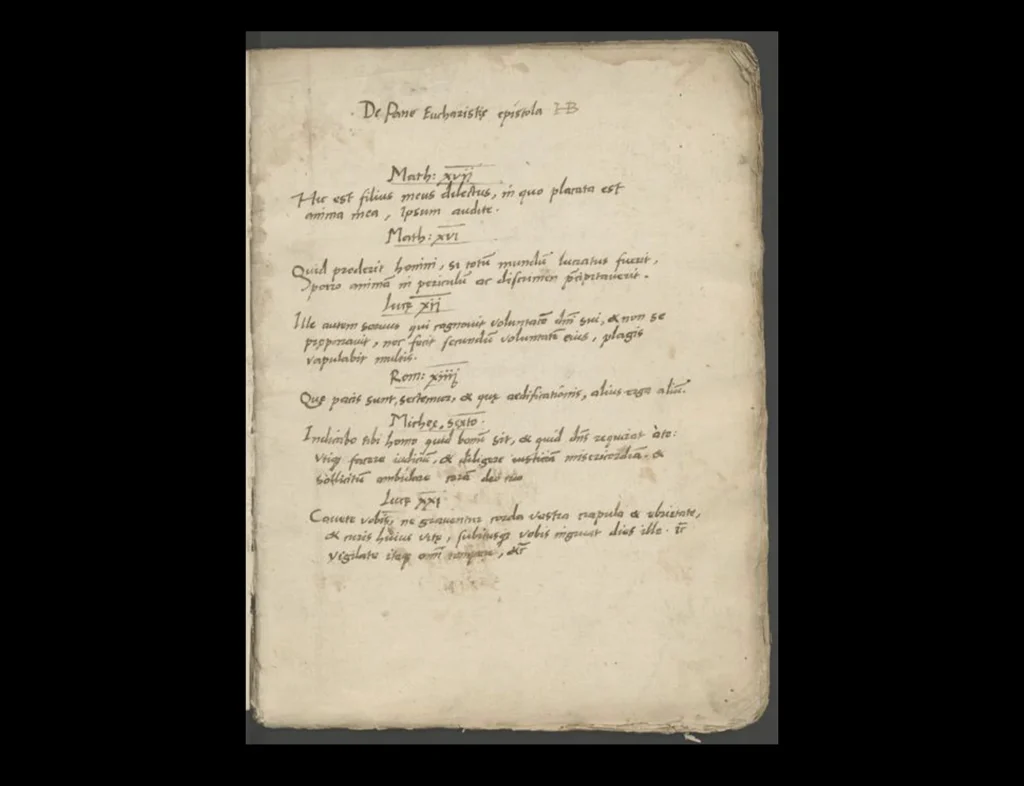 De Pane Eucharistię epistola IB
Math: xvij
Hic est filius meus dilectus, in quo placata est
anima mea, Ipsum audite.
Math: xvi
Quid proderit homini, si totū mundū lucratus fuerit,
porro animā in periculū ac discrimen p̄cipitauerit.
Lucę xij
Ille autem seruus qui cognouit voluntatē dn̄i sui, & non se
pręparauit, nec fecit secundū voluntatē eius, plagis
vapulabit multis.
Rom: xiiij
Quę pacis sunt, sectemur, & quę aedificationis, alius erga aliū.
Michęę sexto.
Indicabo tibi homo quid bonū sit, & quid dn̄s requirat à te:
vtiq facere iudiciū, & diligere misericordiā. &
sollicitū ambulare corā deo tuo
Lucę xxi
Cauete vobis, ne grauentur corda vestra crapula & ebrietate,
& curis huius vitę, subitusq vobis ingruat dies ille.
Vigilate itaq omī tempore, &c̄